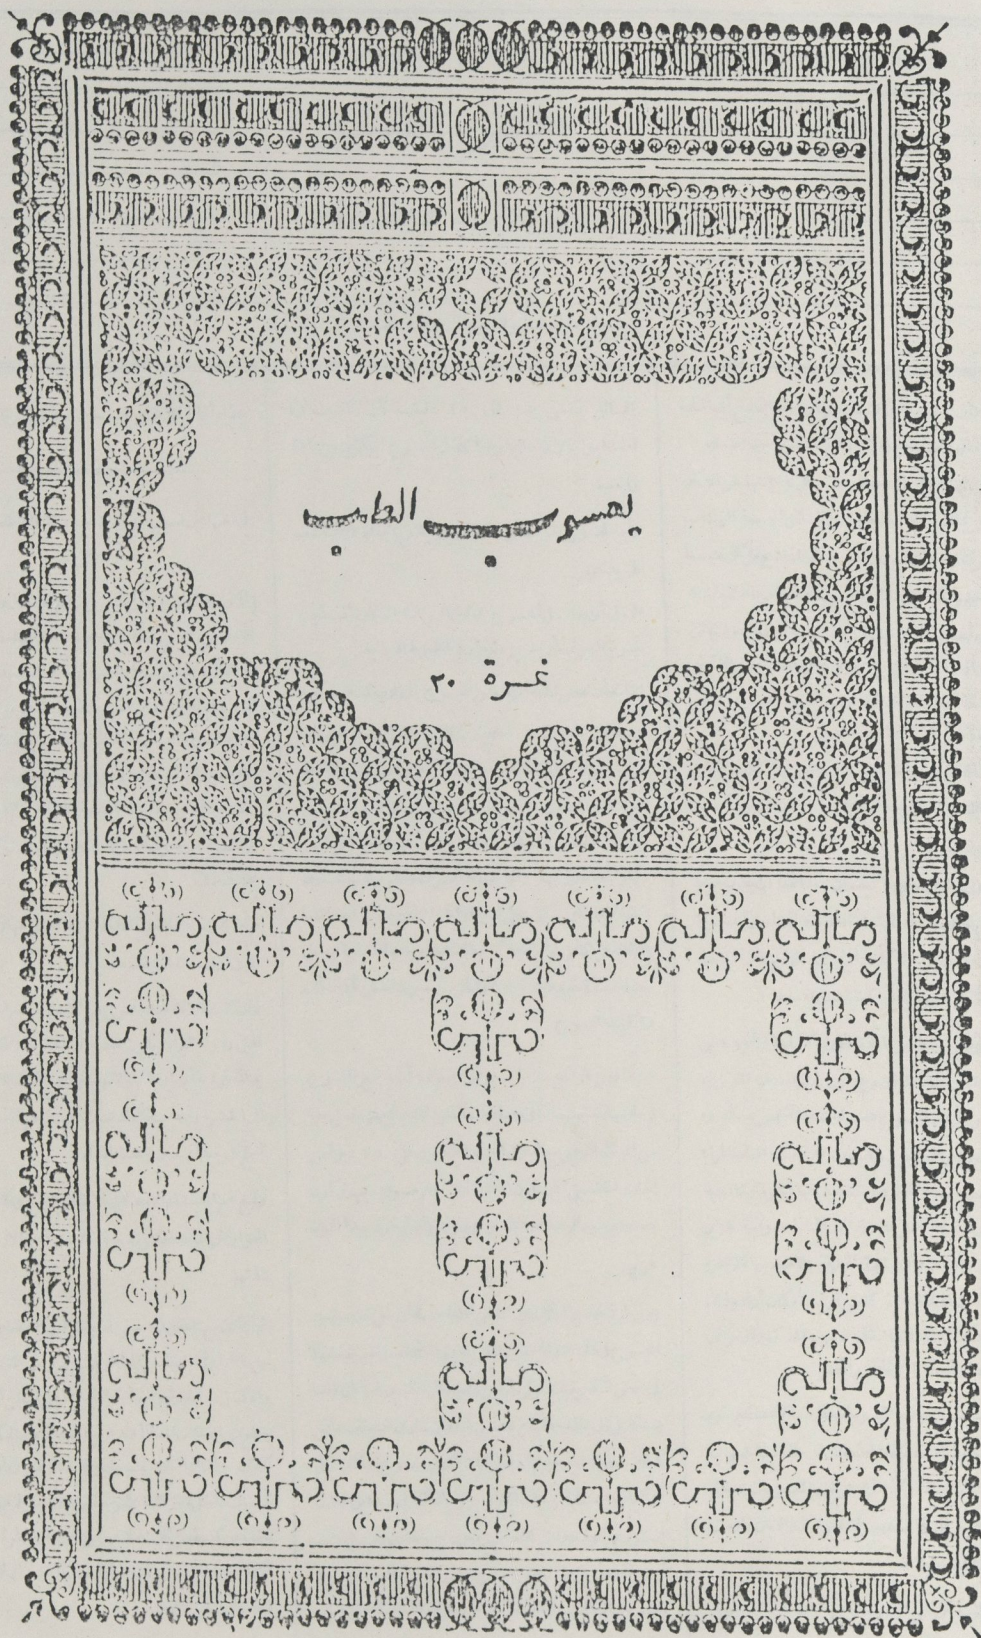 يعسوب الطب
نمرة ٢٠